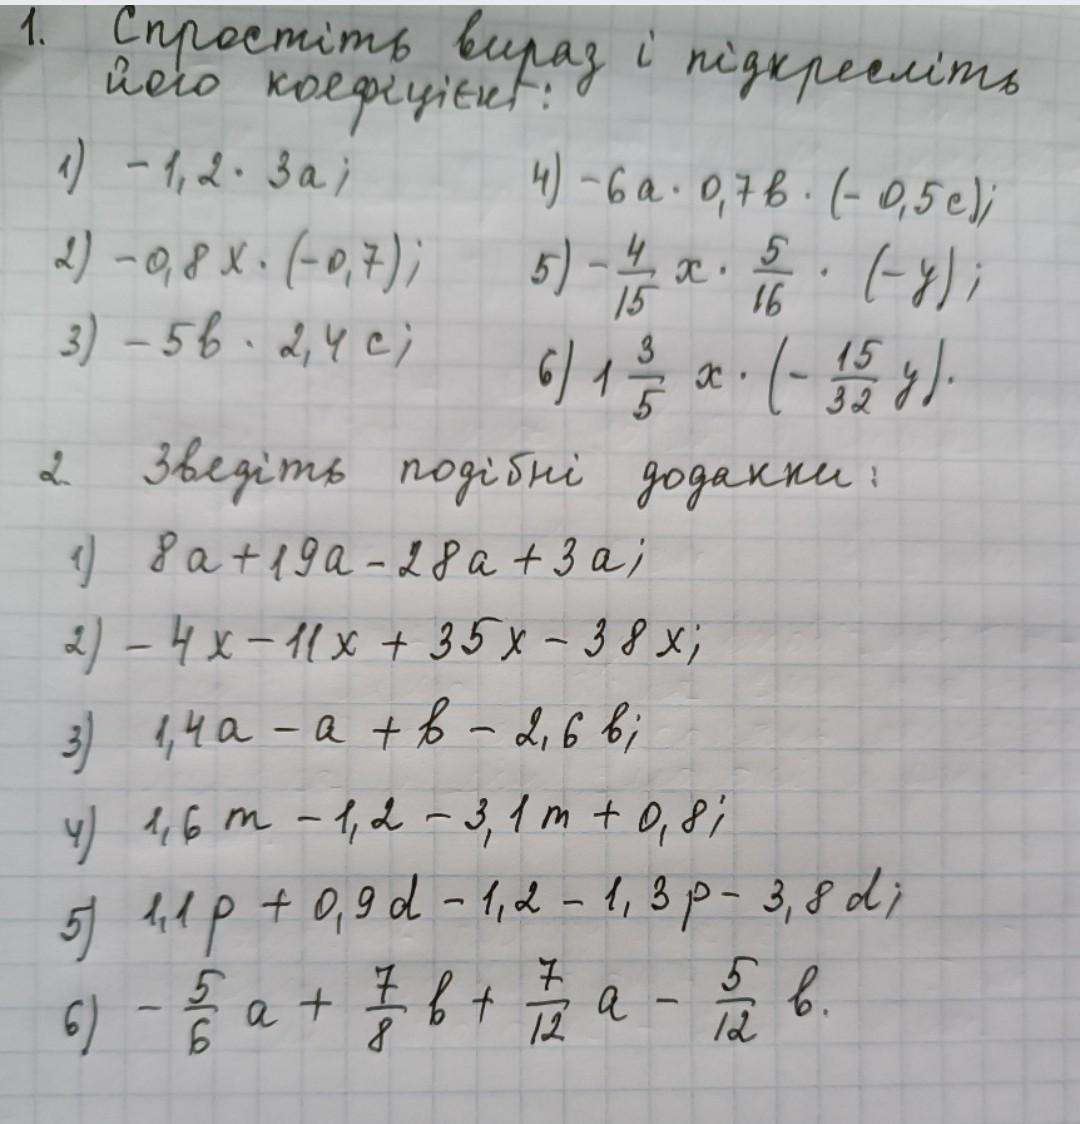 1. Спростіть вираз і підкресліть
його коефіцієнт:
1) -1,2 · 3a;
4) -6a · 0,7b · (-0,5c);
2) -0,8x · (-0,7);
5) -4/15 x · 5/16 · (-y);
3) -5b · 2,4c;
6) 1 3/5 x · (-15/32 y).
2. Зведіть подібні доданки:
1) 8a+19a-28a+3a;
2) -4x-11x+35x-38x;
3) 1,4a-a+b-2,6b;
4) 1,6m-1,2-3,1m+0,8;
5) 1,1p+0,9d-1,2-1,3p-3,8d;
6) -5/6 a + 7/8 b + 7/12 a - 5/12 b.